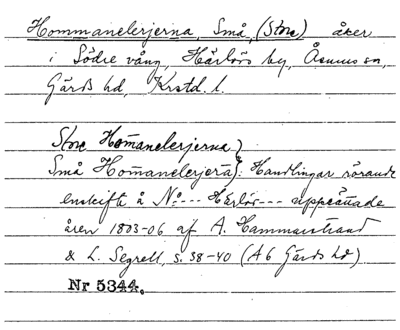 Hommanelerjerna, Små, (Stora) åker
i Södre vång, Härlövs by, Åsums sn,
Gärds hd, Krstd. l.
Stora Hom̄anelerjerna)
Små Hom̄anelerjera}: Handlingar rörande
enskifte å No: --- Herlöf --- upprättade
åren 1803-06 af A. Hammarstrand
& L. Segrell, s. 38-40 (A 6 Gärds hd)
Nr 5344.